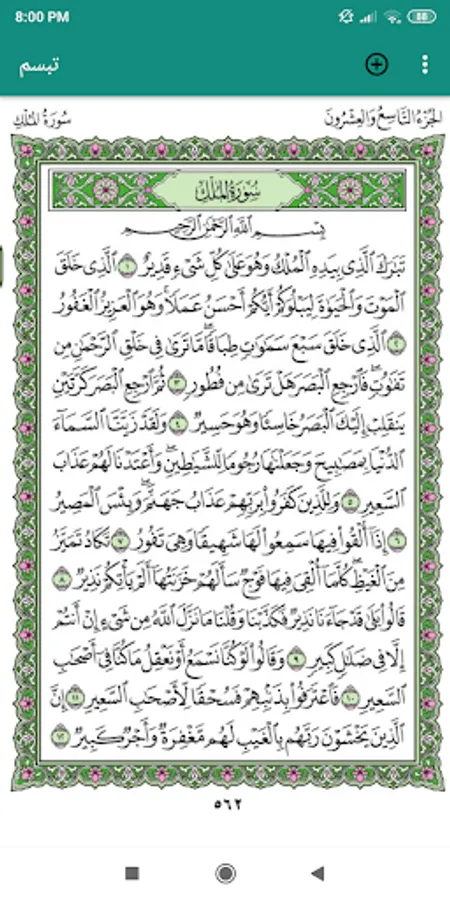 8:00 PM
تبسم
الجزء التاسع والعشرون
سورة الملك
سُورَةُ المُلْكِ
بِسْمِ اللَّهِ الرَّحْمَٰنِ الرَّحِيمِ
تَبَٰرَكَ الَّذِي بِيَدِهِ الْمُلْكُ وَهُوَ عَلَىٰ كُلِّ شَيْءٍ قَدِيرٌ ١ الَّذِي خَلَقَ
الْمَوْتَ وَالْحَيَوٰةَ لِيَبْلُوَكُمْ أَيُّكُمْ أَحْسَنُ عَمَلًا ۚ وَهُوَ الْعَزِيزُ الْغَفُورُ
٢ الَّذِي خَلَقَ سَبْعَ سَمَٰوَٰتٍ طِبَاقًا ۖ مَّا تَرَىٰ فِي خَلْقِ الرَّحْمَٰنِ مِن
تَفَٰوُتٍ ۖ فَارْجِعِ الْبَصَرَ هَلْ تَرَىٰ مِن فُطُورٍ ٣ ثُمَّ ارْجِعِ الْبَصَرَ كَرَّتَيْنِ
يَنقَلِبْ إِلَيْكَ الْبَصَرُ خَاسِئًا وَهُوَ حَسِيرٌ ٤ وَلَقَدْ زَيَّنَّا السَّمَاءَ
الدُّنْيَا بِمَصَٰبِيحَ وَجَعَلْنَٰهَا رُجُومًا لِّلشَّيَٰطِينِ ۖ وَأَعْتَدْنَا لَهُمْ عَذَابَ
السَّعِيرِ ٥ وَلِلَّذِينَ كَفَرُوا بِرَبِّهِمْ عَذَابُ جَهَنَّمَ ۖ وَبِئْسَ الْمَصِيرُ
٦ إِذَا أُلْقُوا فِيهَا سَمِعُوا لَهَا شَهِيقًا وَهِيَ تَفُورُ ٧ تَكَادُ تَمَيَّزُ
مِنَ الْغَيْظِ ۖ كُلَّمَا أُلْقِيَ فِيهَا فَوْجٌ سَأَلَهُمْ خَزَنَتُهَا أَلَمْ يَأْتِكُمْ نَذِيرٌ ٨
قَالُوا بَلَىٰ قَدْ جَاءَنَا نَذِيرٌ فَكَذَّبْنَا وَقُلْنَا مَا نَزَّلَ اللَّهُ مِن شَيْءٍ إِنْ أَنتُمْ
إِلَّا فِي ضَلَٰلٍ كَبِيرٍ ٩ وَقَالُوا لَوْ كُنَّا نَسْمَعُ أَوْ نَعْقِلُ مَا كُنَّا فِي أَصْحَٰبِ
السَّعِيرِ ١٠ فَاعْتَرَفُوا بِذَنبِهِمْ فَسُحْقًا لِّأَصْحَٰبِ السَّعِيرِ ١١ إِنَّ
الَّذِينَ يَخْشَوْنَ رَبَّهُم بِالْغَيْبِ لَهُم مَّغْفِرَةٌ وَأَجْرٌ كَبِيرٌ ١٢
٥٦٢